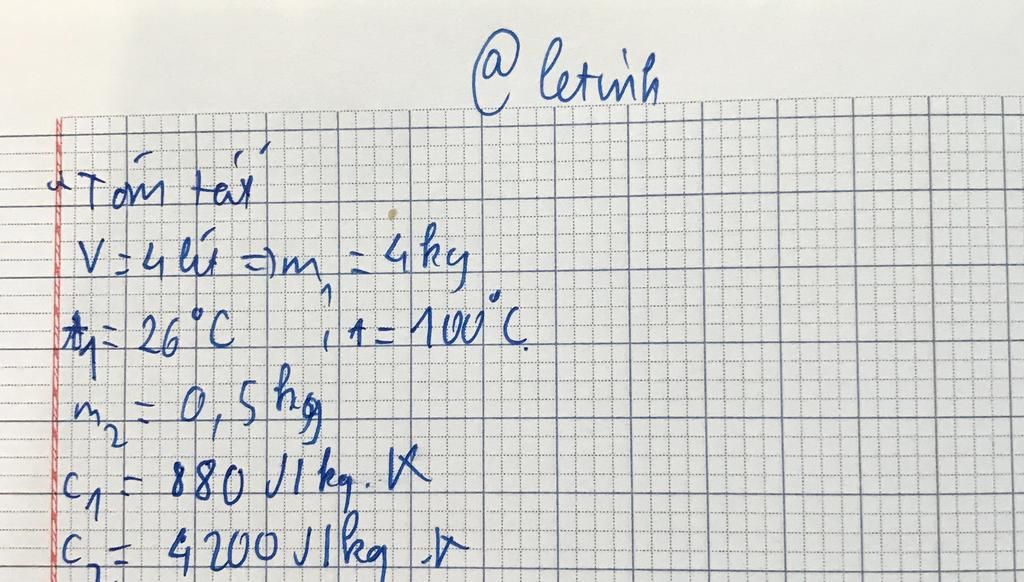 @ letinh
Tóm tắt
V = 4 lít => m₁ = 4 kg
t₁ = 26°C , t = 100°C.
m₂ = 0,5 kg
c₁ = 880 J/kg.K
c₂ = 4200 J/kg.K